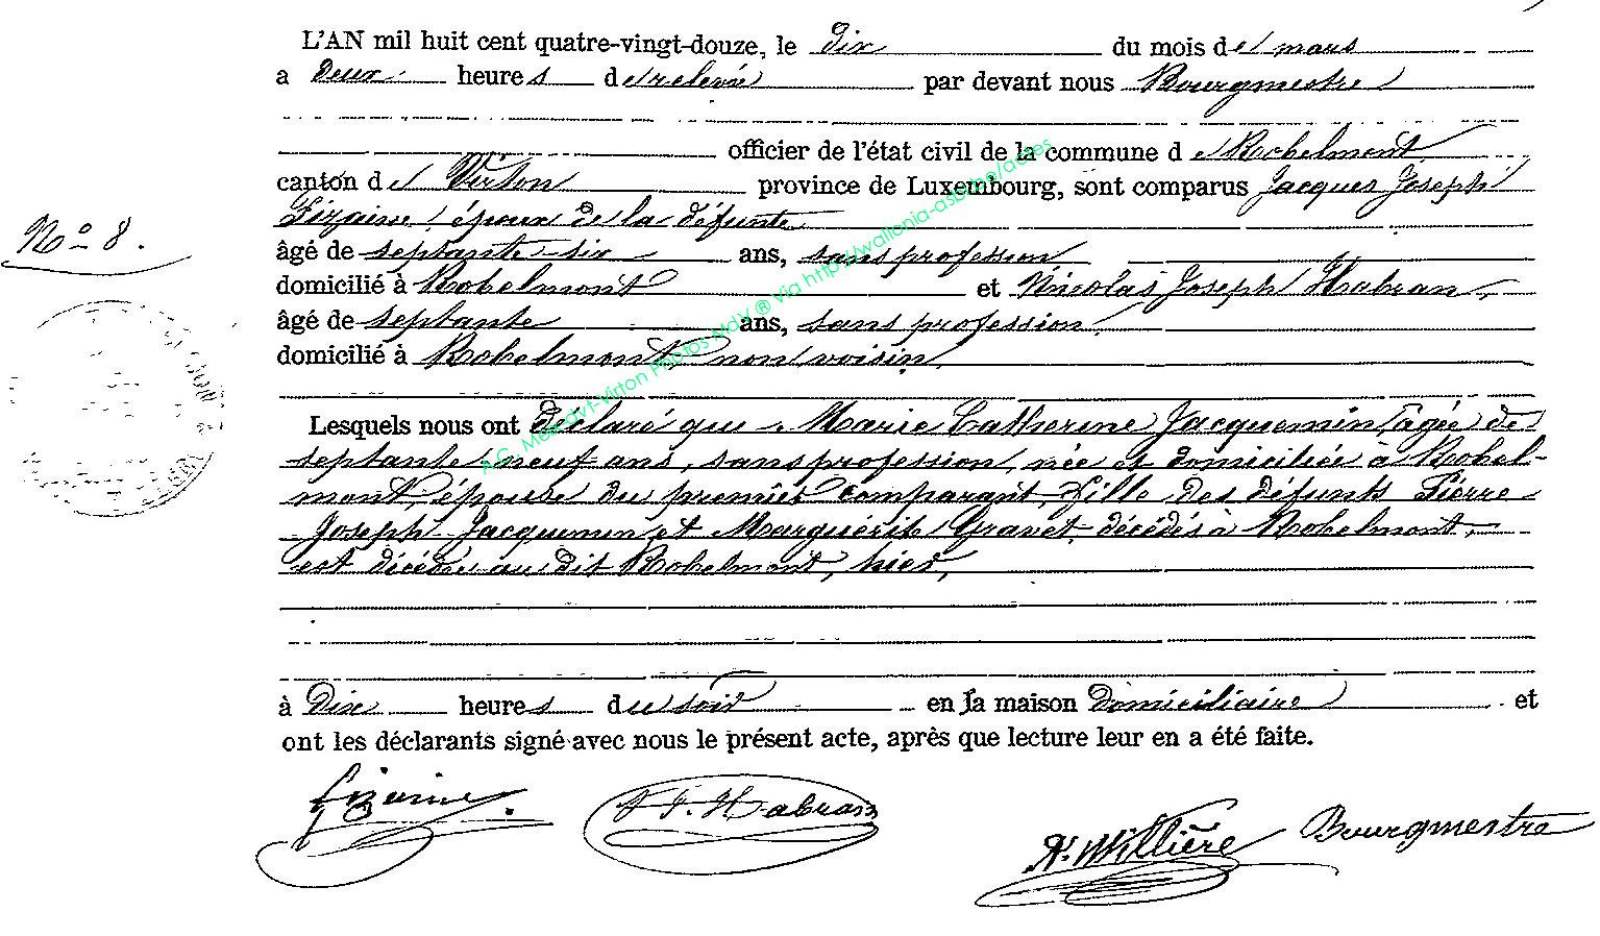 L'AN mil huit cent quatre-vingt-douze, le Dix du mois de mars
a Deux heures de relevé par devant nous Bourgmestre
officier de l'état civil de la commune de Robelmont
canton de Virton province de Luxembourg, sont comparus Jacques Joseph
Lizaine, époux de la défunte
N° 8.
âgé de septante-six ans, sans profession
domicilié à Robelmont et Nicolas Joseph Habran,
âgé de septante ans, sans profession,
domicilié à Robelmont non voisin,
Lesquels nous ont déclaré que Marie Catherine Jacquemin âgée de
septante neuf ans, sans profession, née et domiciliée à Robel-
mont, épouse du premier comparant, fille des défunts Pierre
Joseph Jacquemin et Marguérite Gravet décédés à Robelmont,
est décédée au dit Robelmont, hier,
à Dix heures du soir en la maison Domiciliaire et
ont les déclarants signé avec nous le présent acte, après que lecture leur en a été faite.
Lizaine N. J. Habran
N. Willière Bourgmestre
A.G. Meix-dvt-Virton Photos MdV ® Via http://wallonia-asbl.be/actes